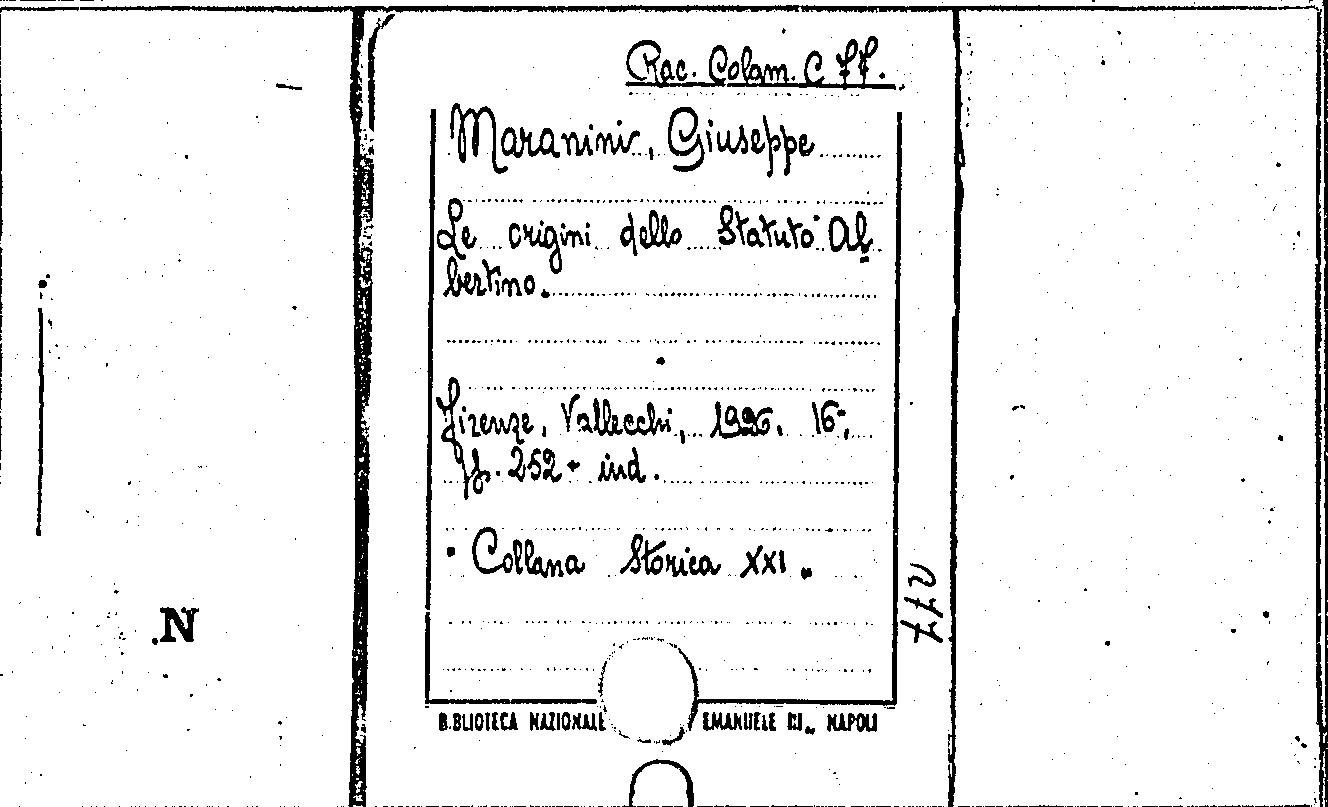 Rac. Colam. C 77.
Maranini, Giuseppe
Le origini dello Statuto Al
bertino.
Firenze, Vallecchi, 1926. 16°,
pp. 252 + ind.
" Collana Storica XXI "
N
277
BIBLIOTECA NAZIONALE EMANUELE III" NAPOLI